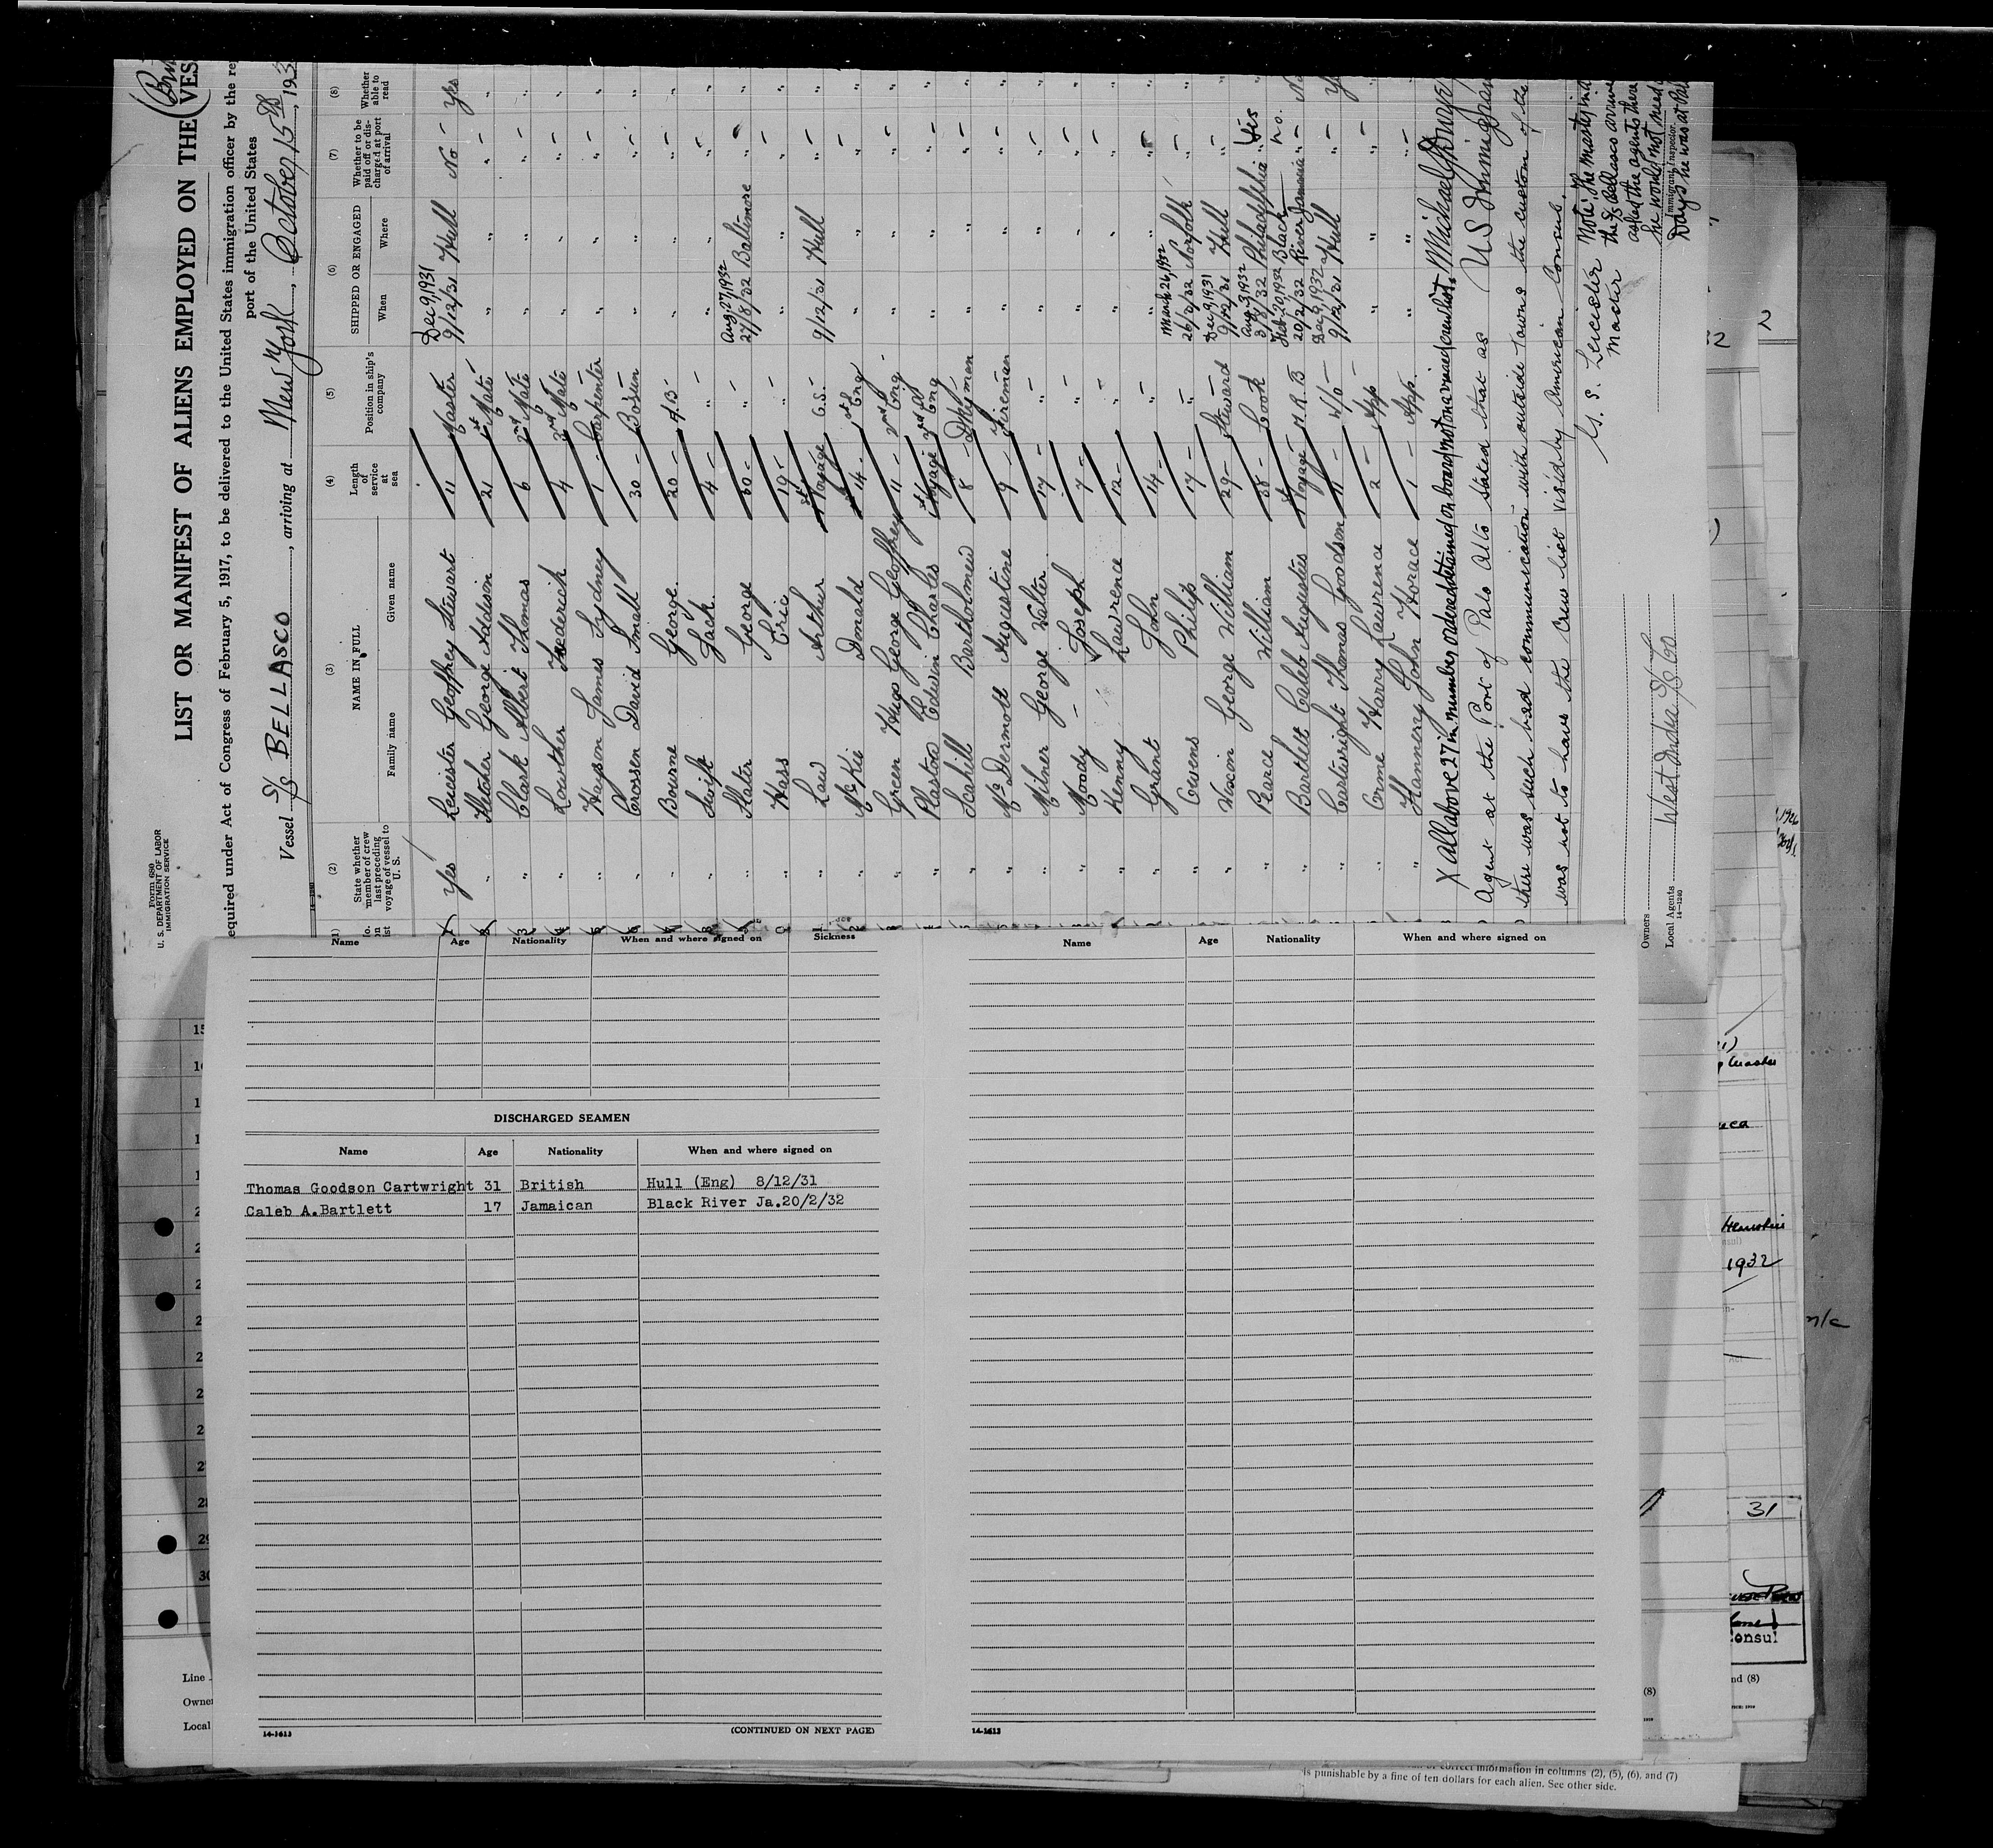 Form 680
U. S. DEPARTMENT OF LABOR
IMMIGRATION SERVICE
LIST OR MANIFEST OF ALIENS EMPLOYED ON THE VES
equired under Act of Congress of February 5, 1917, to be delivered to the United States immigration officer by the re
port of the United States
Vessel S/S BELLASCO, arriving at New York, October 15th, 193
(2) (3) (4) (5) (6) (7) (8)
State whether member of crew last preceding voyage of vessel to U. S.
NAME IN FULL
Family name Given name
Length of service at sea
Position in ship's company
SHIPPED OR ENGAGED
When Where
Whether to be paid off or discharged at port of arrival
Whether able to read
Dec 9, 1931
Yes Leicester Geoffrey Stewart 11 Master 9/12/31 Hull No - Yes
" Fletcher George Addison 21 1st Mate " " " - "
" Clark Albert Thomas 6 2nd Mate " " " - "
" Lowther Frederick 4 3rd Mate " " " - "
" Hayson James Sydney 1 - Carpenter " " " - "
" Crossen David Small 30 - Bosun " " " - "
" Bourne George 20 - A.B - " " " - "
" Swift Jack 4 - " - " " " - "
Aug. 27, 1932
" Slater George 30 - " - 27/8/32 Baltimore " "
" Hass Eric 19 - " - " " " - "
" Law Arthur 1st Voyage O.S. - 9/12/31 Hull " - "
" McKie Donald 14 - 1st Eng " " " - "
" Green Hugo George Geoffrey 11 - 2nd Eng - " " " - "
" Plaston Edwin Charles 1st Voyage 3rd Eng " " " - "
" Scahill Bartholomew 8 - Dkyman " " " - "
" McDermott Augustine 9 - Firemen " " " - "
" Milner George Walter 17 - " - " " " - "
" Moody - Joseph 7 - " - " " " - "
" Kenny Lawrence 12 - " " " " - "
March 26, 1932
" Grant John 14 - " - 26/3/32 Norfolk " - "
Dec 9, 1931
" Owens Philip 17 - " -
" Wilson George William 29 - Steward 9/12/31 Hull " - "
Aug. 3, 1932
" Pearce William 38 - Cook 3/8/32 Philadelphia " Yes "
Feb. 20, 1932 Black no.
" Bartlett Caleb Augustus 1st Voyage - M.R.B 20/2/32 River Jamaica " -
Dec 9, 1932
" Cartwright Thomas Goodson 11 - 9/12/31 Hull " -
" Orme Harry Lawrence 2 - App " " " - "
" Flannery John Horace 1 - App. " " " - "
X all above 27 in number ordered detained on board not on a visaed crew list. Michael J Dwyer
Agent at the Port of Palo Alto stated that as US Immigran
there was such bad communication with outside towns the custom of the
was not to have the Crew list visa'd by American Consul.
G. S. Leicester
Master
Note: The master
the S/S Bellasco
asked the agents there
he would not need
Immigrant Inspector.
Days he was at
Owners
Local Agents West India S/S Co
14-1240
Name Age Nationality When and where signed on Sickness
DISCHARGED SEAMEN
Name Age Nationality When and where signed on
Thomas Goodson Cartwright 31 British Hull (Eng) 8/12/31
Caleb A.Bartlett 17 Jamaican Black River Ja.20/2/32
14-1613
(CONTINUED ON NEXT PAGE)
Name Age Nationality When and where signed on
14-1613
28
29
30
Line
Owner
Local
n/c
1932
31
onsul
nd (8)
(8)
correct information in columns (2), (5), (6), and (7)
is punishable by a fine of ten dollars for each alien. See other side.